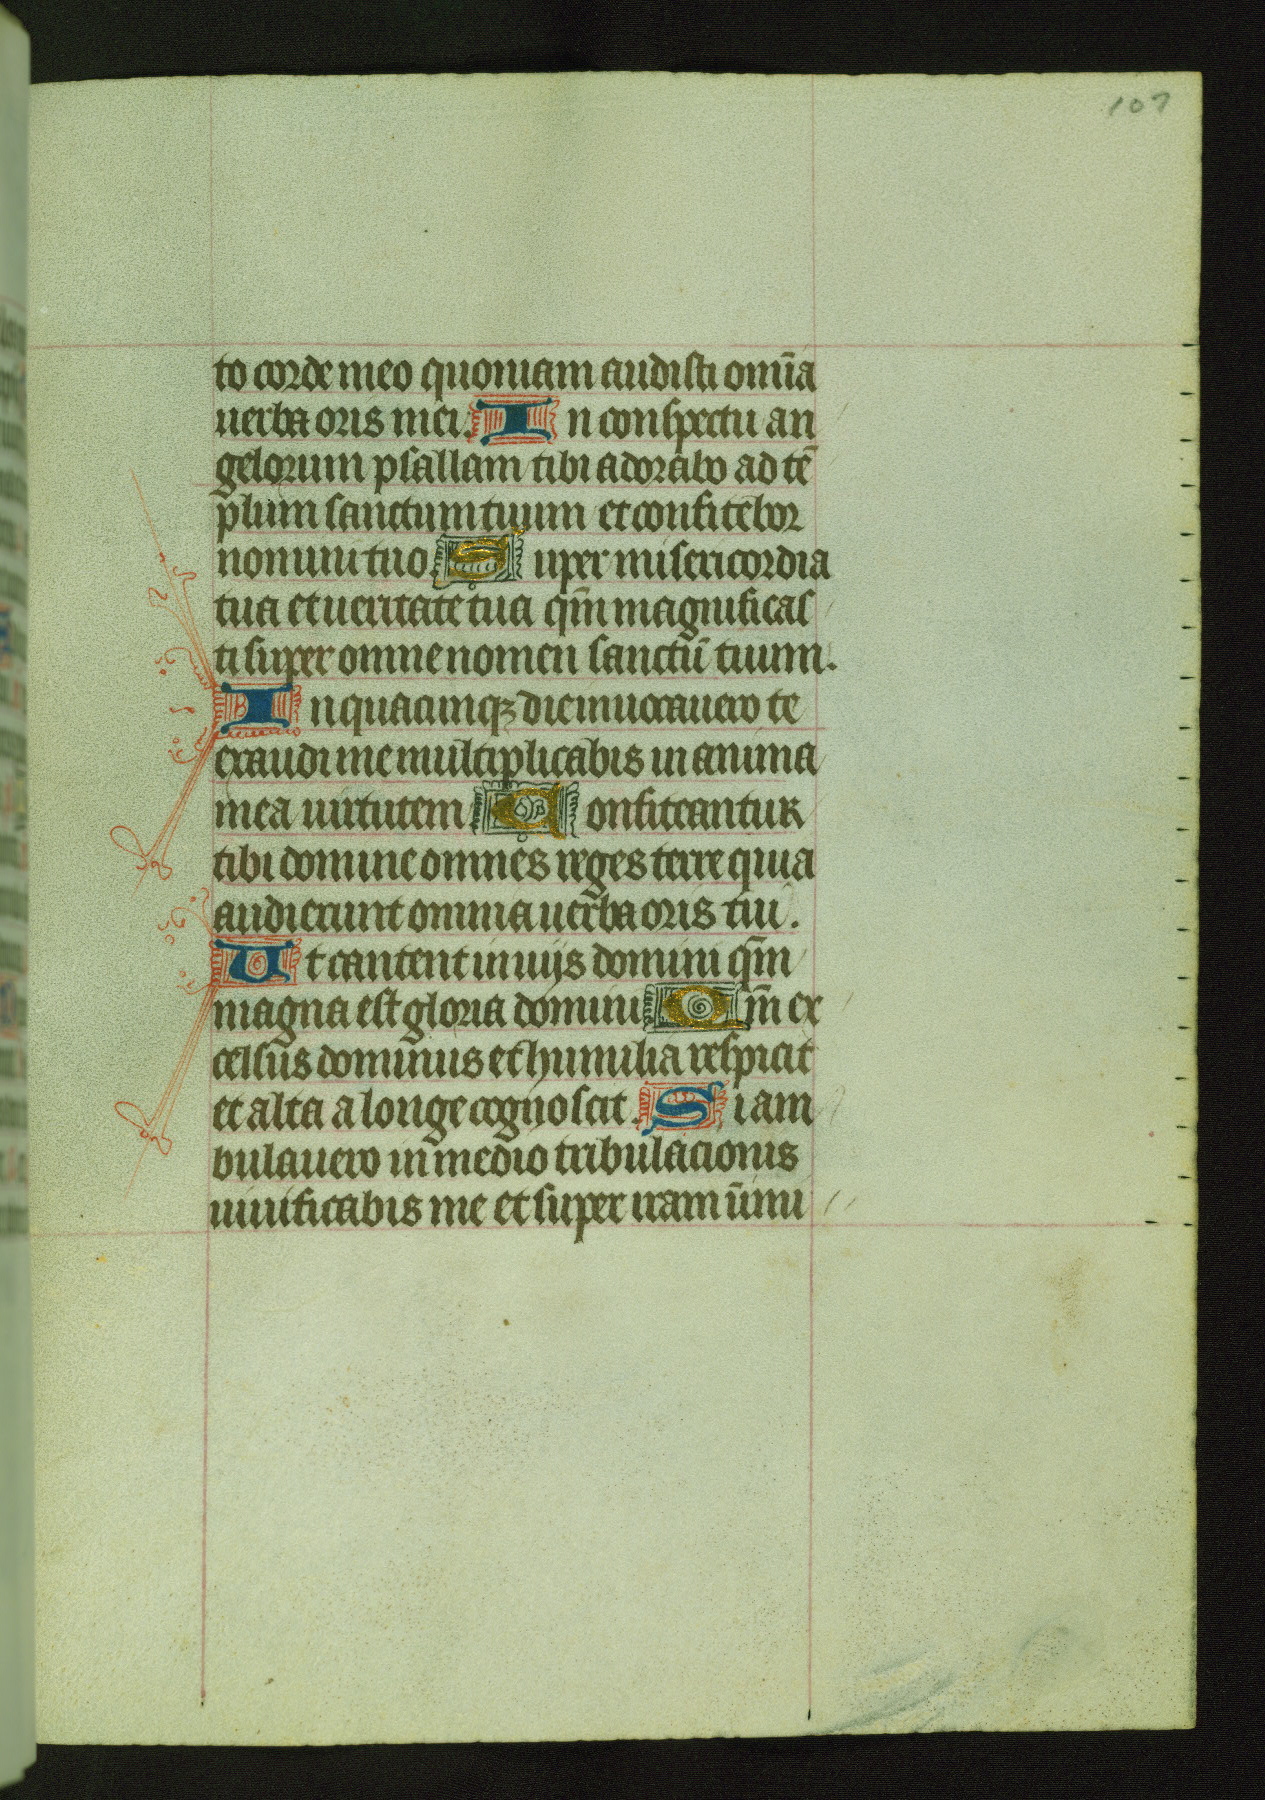 107
to corde meo quoniam audisti om̄ia
uerba oris mei. In conspectu an
gelorum psallam tibi adorabo ad tē
plum sanctum tuum et confitebor
nomini tuo. Super misericordia
tua et ueritate tua qm̄ magnificas
ti super omne nomen sanctū tuum.
In quacumqꝫ die inuocauero te
exaudi me multiplicabis in anima
mea uirtutem Confiteantur
tibi domine omnes reges terre quia
audierunt omnia uerba oris tui.
Ut cantent in uijs domini qm̄
magna est gloria domini Qm̄ ex
celsus dominus et humilia respicit
et alta a longe cognoscit. Si am
bulauero in medio tribulacionis
uiuificabis me et super iram īimi